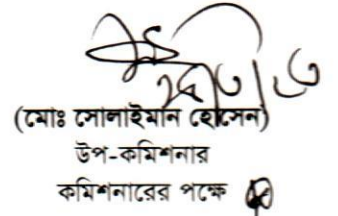 (মোঃ সোলাইমান হোসেন)
উপ-কমিশনার
কমিশনারের পক্ষে